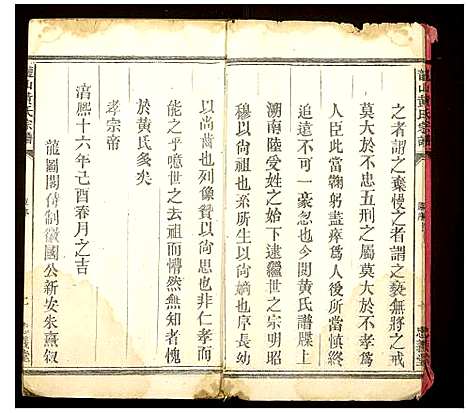 龍山黃氏宗譜
之者謂之棄慢之者謂之褻無將之戒
莫大於不忠五刑之屬莫大於不孝為
人臣此當鞠躬盡瘁為人後所當慎終
追遠不可一毫忽也今閱黃氏譜牒上
溯南陸受姓之始下逮繼世之宗明昭
穆以尚祖也系所生以尚嫡也序長幼
以尚齒也列像贊以尚思也非仁孝而
能之乎噫世之去祖而懵然無知者愧
於黃氏多矣
孝宗帝
淳熙十六年己酉春月之吉
龍圖閣待制徽國公新安朱熹叙
龍山黃氏宗譜
忠義堂